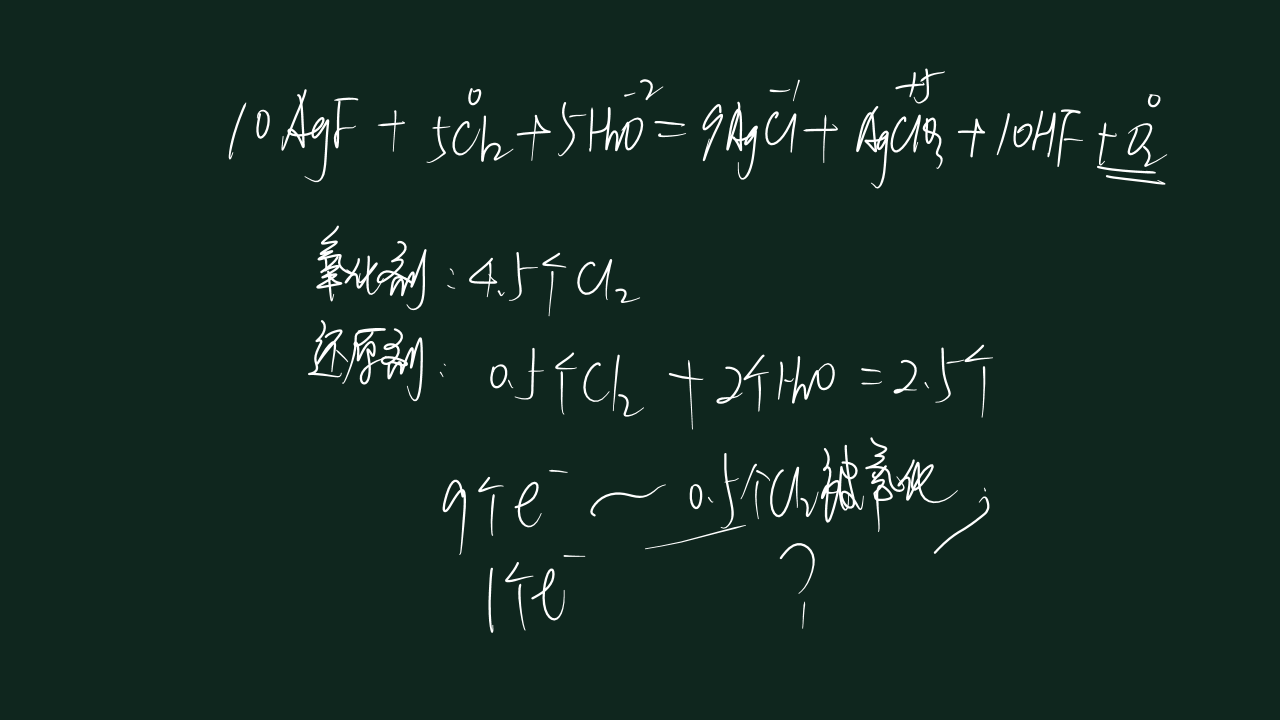 10AgF + 5Cl₂ + 5H₂O = 9AgCl + AgClO₃ + 10HF + O₂
0 -2 -1 +5 0
氧化剂：4.5个Cl₂
还原剂：0.5个Cl₂ + 2个H₂O = 2.5个
9个e⁻ ～ 0.5个Cl₂被氧化；
1个e⁻ ?